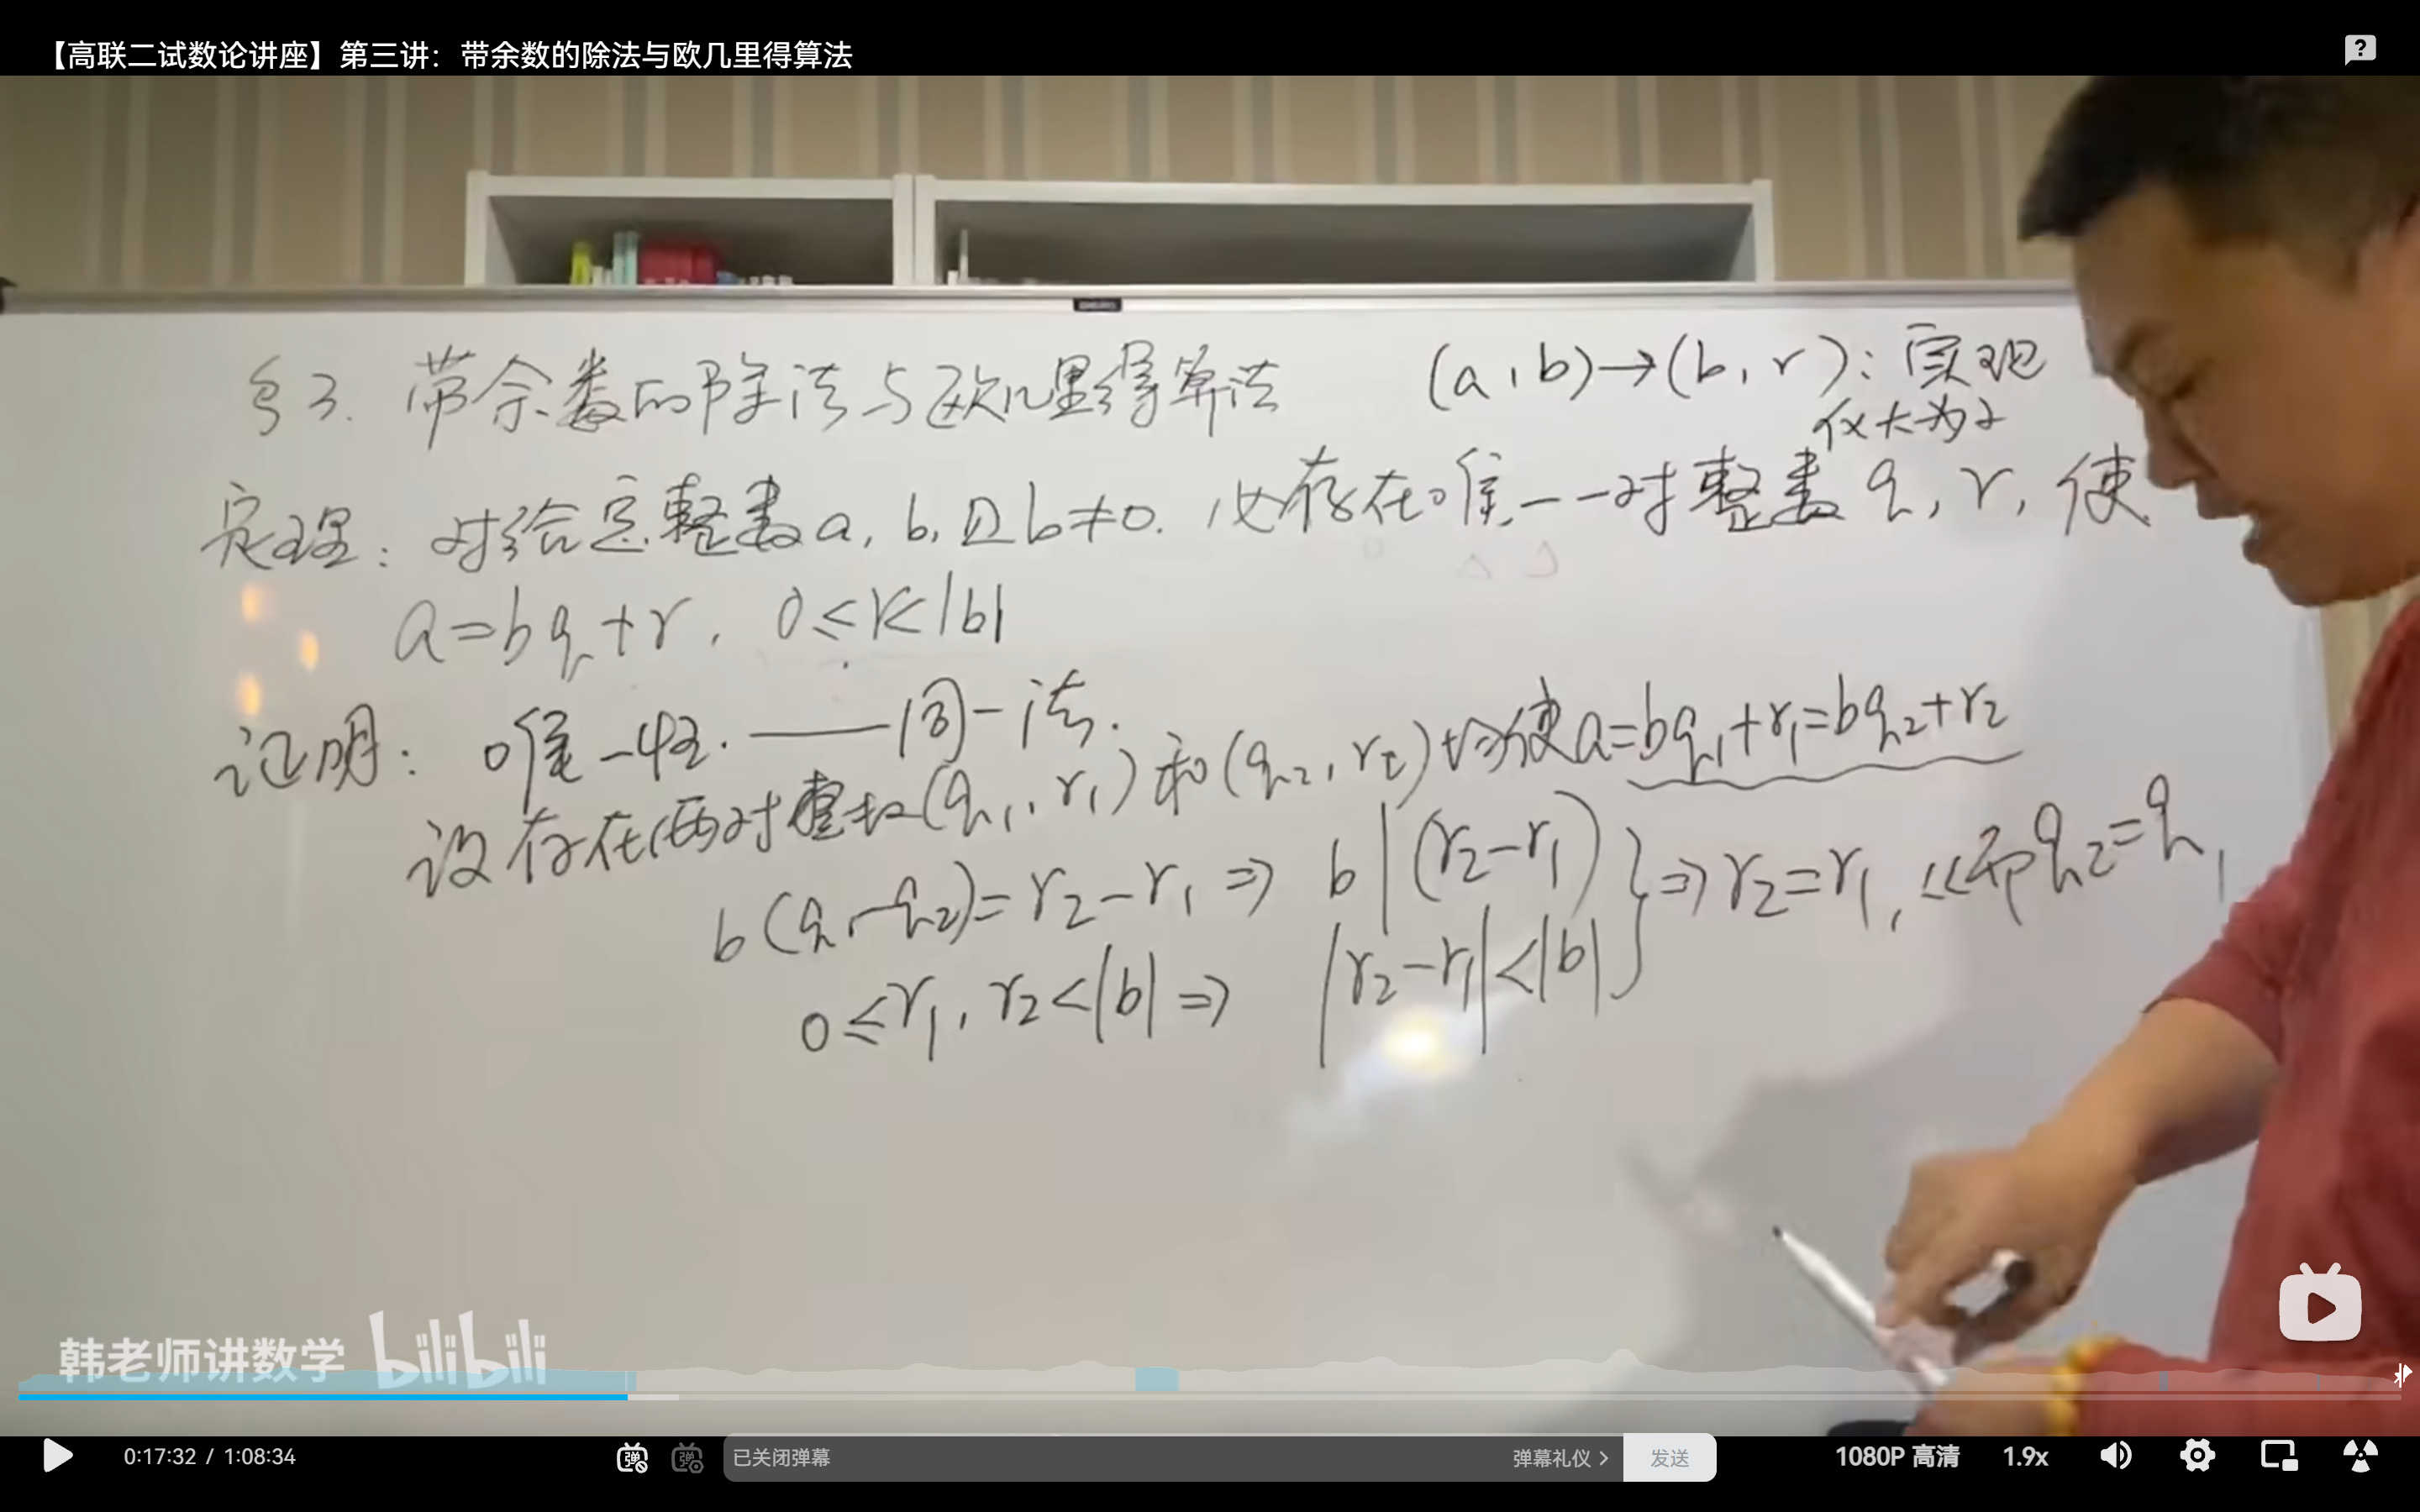 【高联二试数论讲座】第三讲：带余数的除法与欧几里得算法
§3. 带余数的除法与欧几里得算法 (a,b)→(b,r): 实现
仅大为小
定理: 对给定整数a, b, 且b≠0. 必存在唯一一对整数q, r, 使
a=bq+r, 0≤r<|b|
证明: 唯一性. ——同一法.
设存在两对整数(q₁, r₁)和(q₂, r₂)均使a=bq₁+r₁=bq₂+r₂
b(q₁-q₂)=r₂-r₁ ⇒ b|(r₂-r₁) } ⇒ r₂=r₁, 从而q₂=q₁
0≤r₁, r₂<|b| ⇒ |r₂-r₁|<|b|
韩老师讲数学 bilibili
0:17:32 / 1:08:34 弹 弹 已关闭弹幕 弹幕礼仪 > 发送 1080P 高清 1.9x